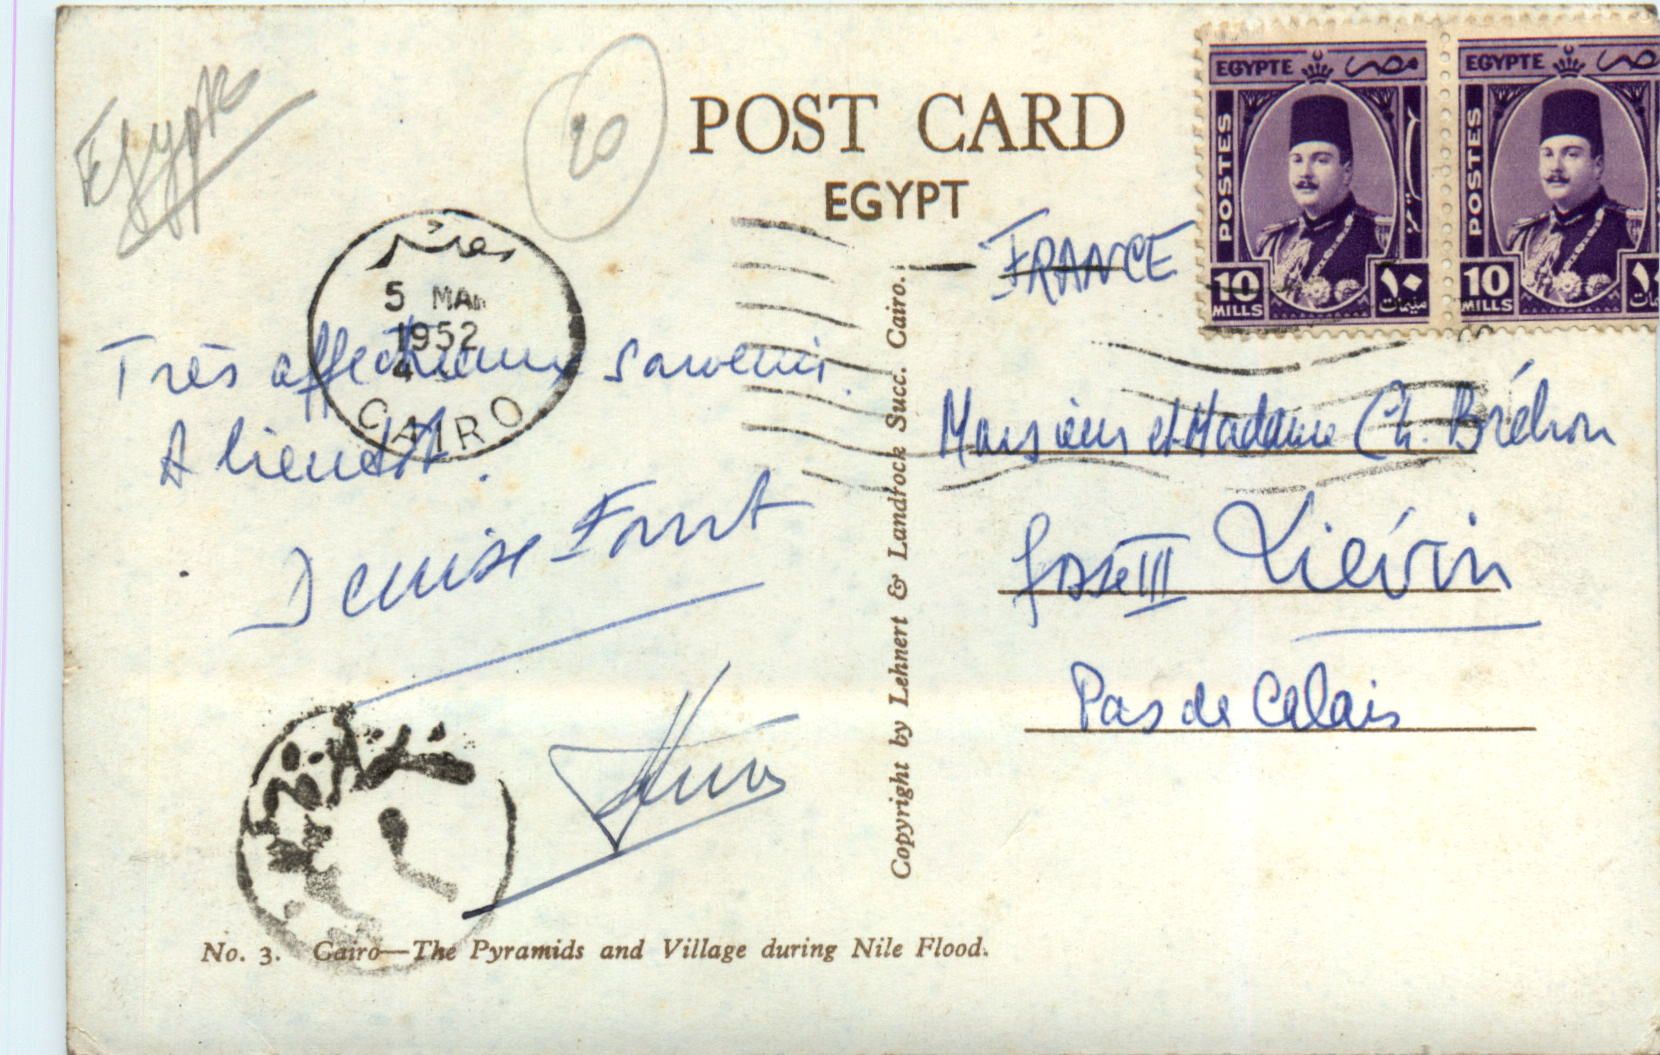 Egypte
20
POST CARD
EGYPT
EGYPTE مصر
POSTES
10
MILLS
١٠
مليمات
EGYPTE مصر
POSTES
10
MILLS
5 MAR
1952
CAIRO
FRANCE
Très affectueux souvenir.
A bientôt.
Denise
Monsieur et Madame Ch. Bréhon
fosse III Liévin
Pas de Calais
Copyright by Lehnert & Landrock Succ. Cairo.
No. 3. Cairo—The Pyramids and Village during Nile Flood.